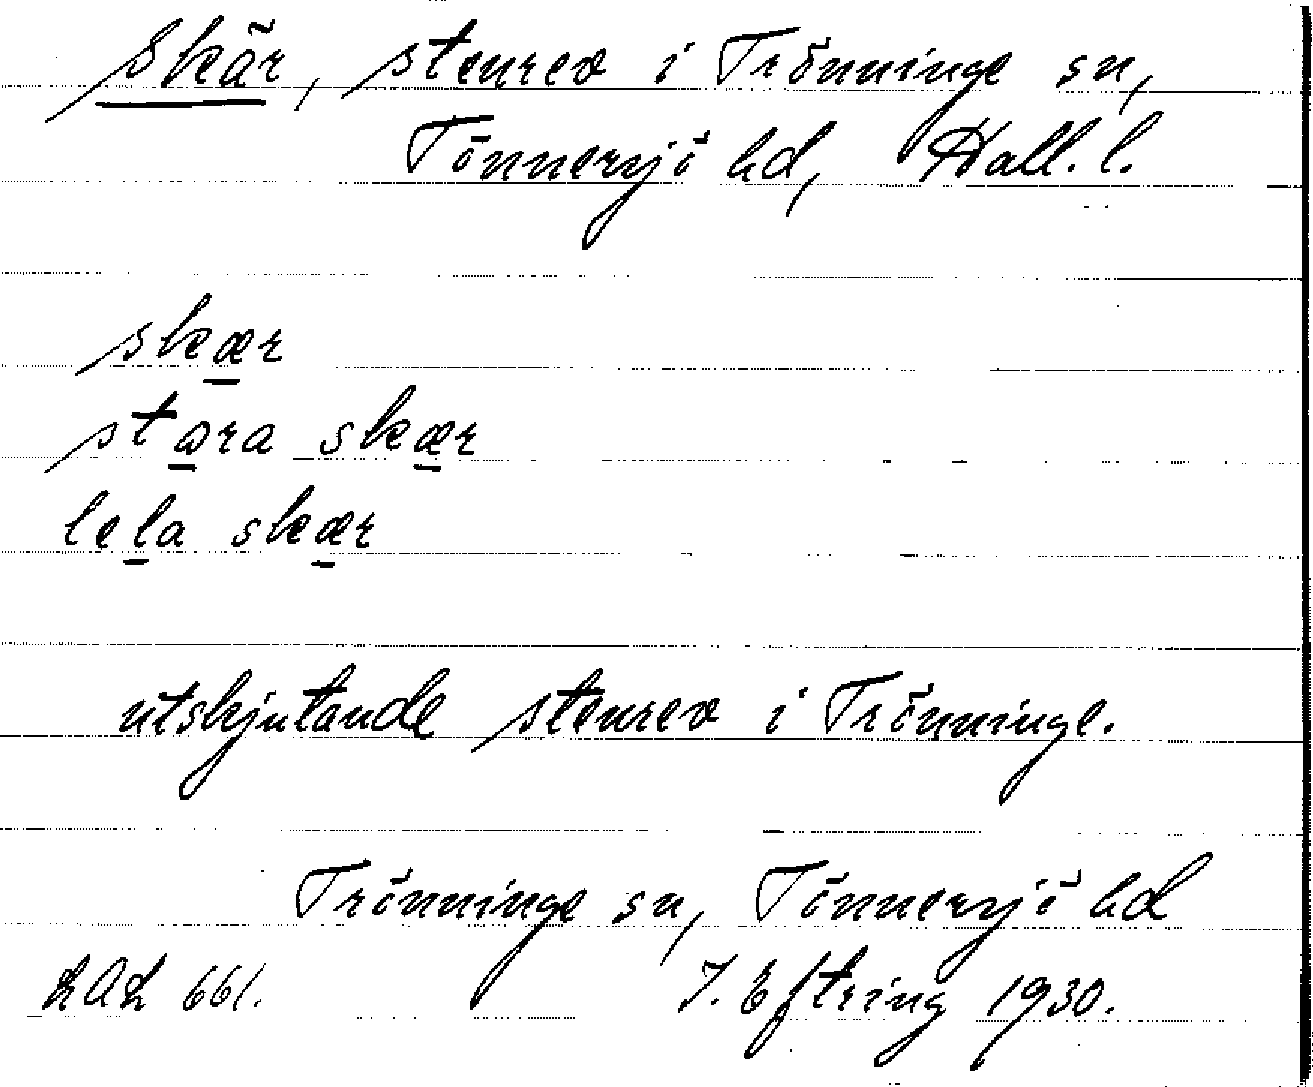 Skär, stenrev i Trönninge sn,
Tönnersjö hd, Hall. l.
skær
støra skær
lela skær
utskjutande stenrev i Trönninge.
Trönninge sn, Tönnersjö hd
LAL 661. J. Eftring 1930.